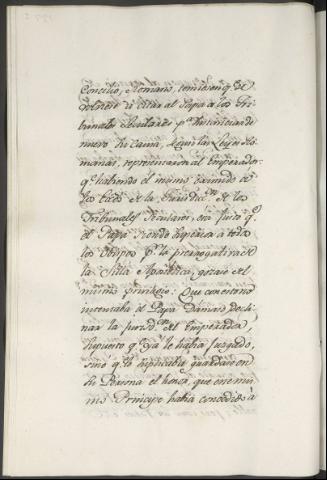 Concilio, Romano, temiosen qe. se
volviese à citar al Papa a los Tri-
bunales Seculares pa. substanciar de
nuevo su causa, segun las Leyes Ro-
manas, representaron al Emperador
qe. habiendo el mismo eximido à
los Obispos de la Jurisdiccn. de los
Tribunales Seculares, era justo qe.
el Papa siendo superior a todos
los Obispos pr. la prerrogativa de
la Silla Apostolica, gozase el
mismo privilegio: Que con esto no
intentaba el Papa Damaso decli-
nar la jurisdn. del Emperador,
supuesto qe. ya le habia juzgado,
sino qe. le suplicaba guardase en
su Persona el honor, que one mis-
mo Principe habia concedido à